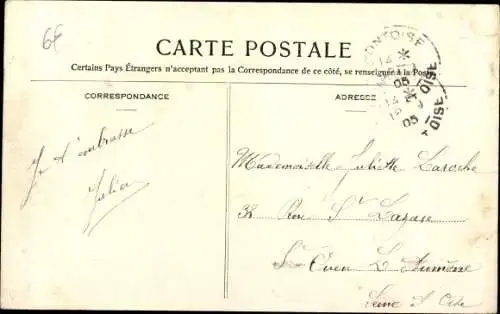 6€
CARTE POSTALE
Certains Pays Étrangers n'acceptant pas la Correspondance de ce côté, se renseigner à la Poste
CORRESPONDANCE
ADRESSE
PONTOISE
OISE
14
05
Je t'embrasse
Julien
Mademoiselle Juliette Laroche
38 Rue St Lazare
St Ouen L'Aumône
Seine et Oise